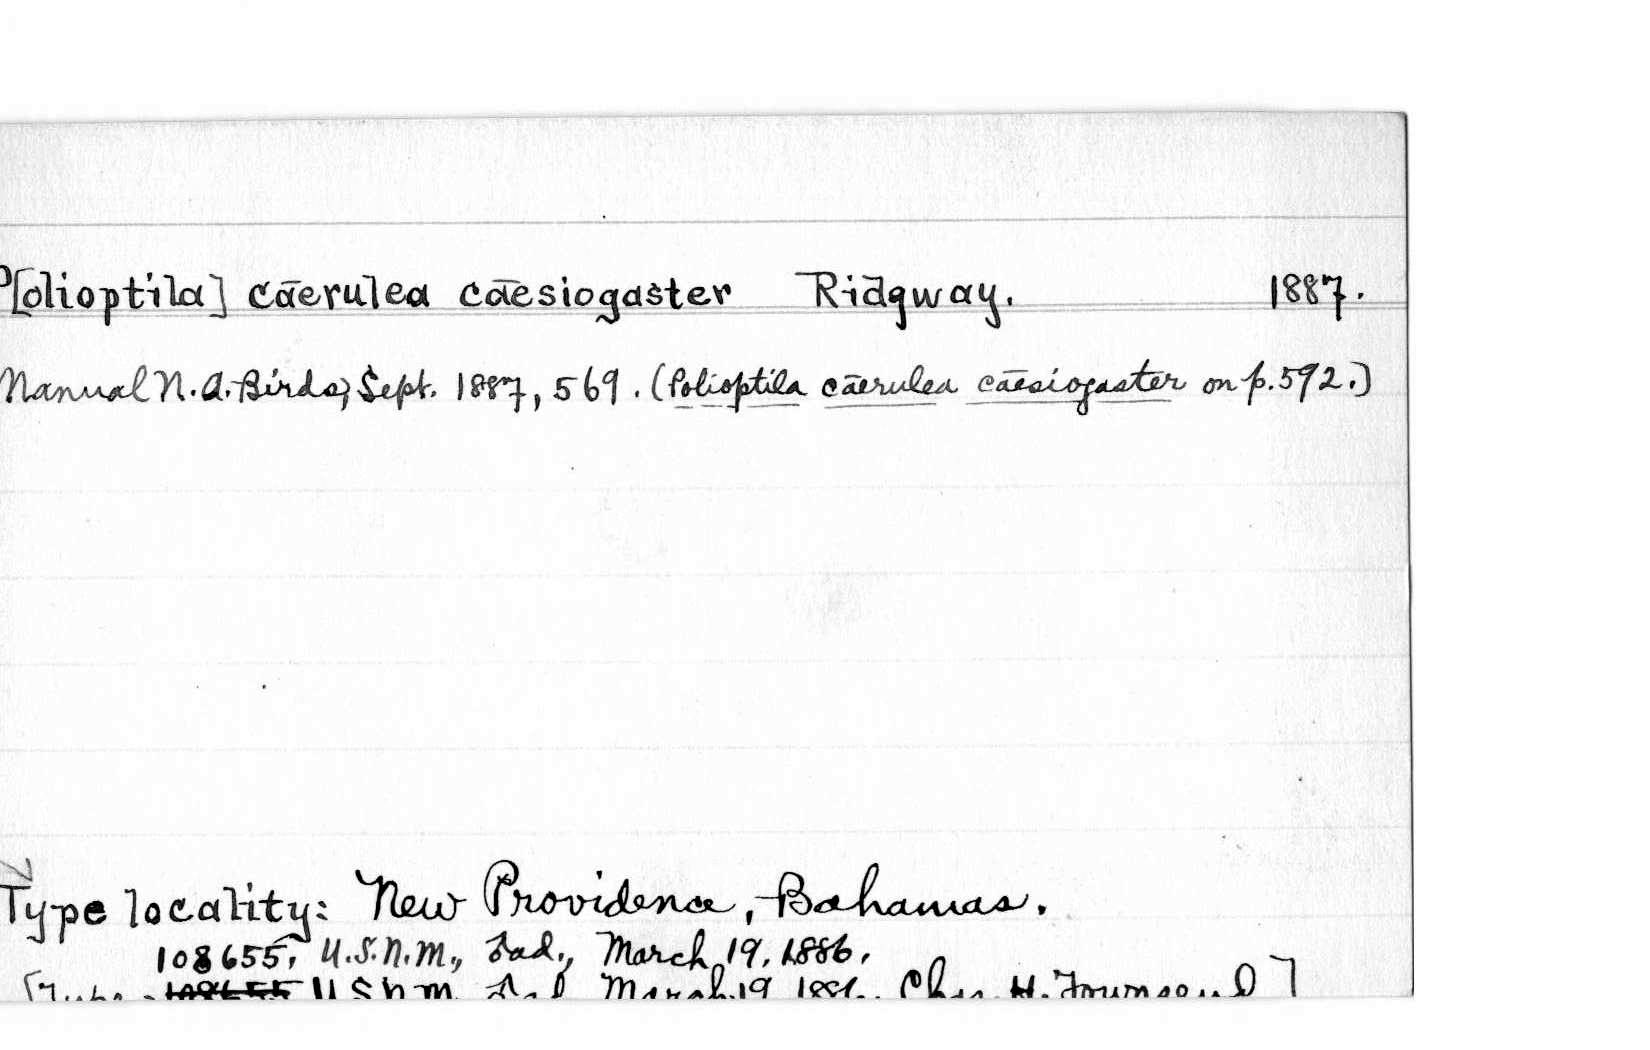 P[olioptila] caerulea caesiogaster Ridgway. 1887.
Manual N. A. Birds, Sept. 1887, 569. (Polioptila caerulea caesiogaster on p. 592.)
Type locality: New Providence, Bahamas.
108655, U.S.N.M., ad., March 19, 1886.
[Type 108655 U.S.N.M. ad. March 19 1886. Chas. H. Townsend]